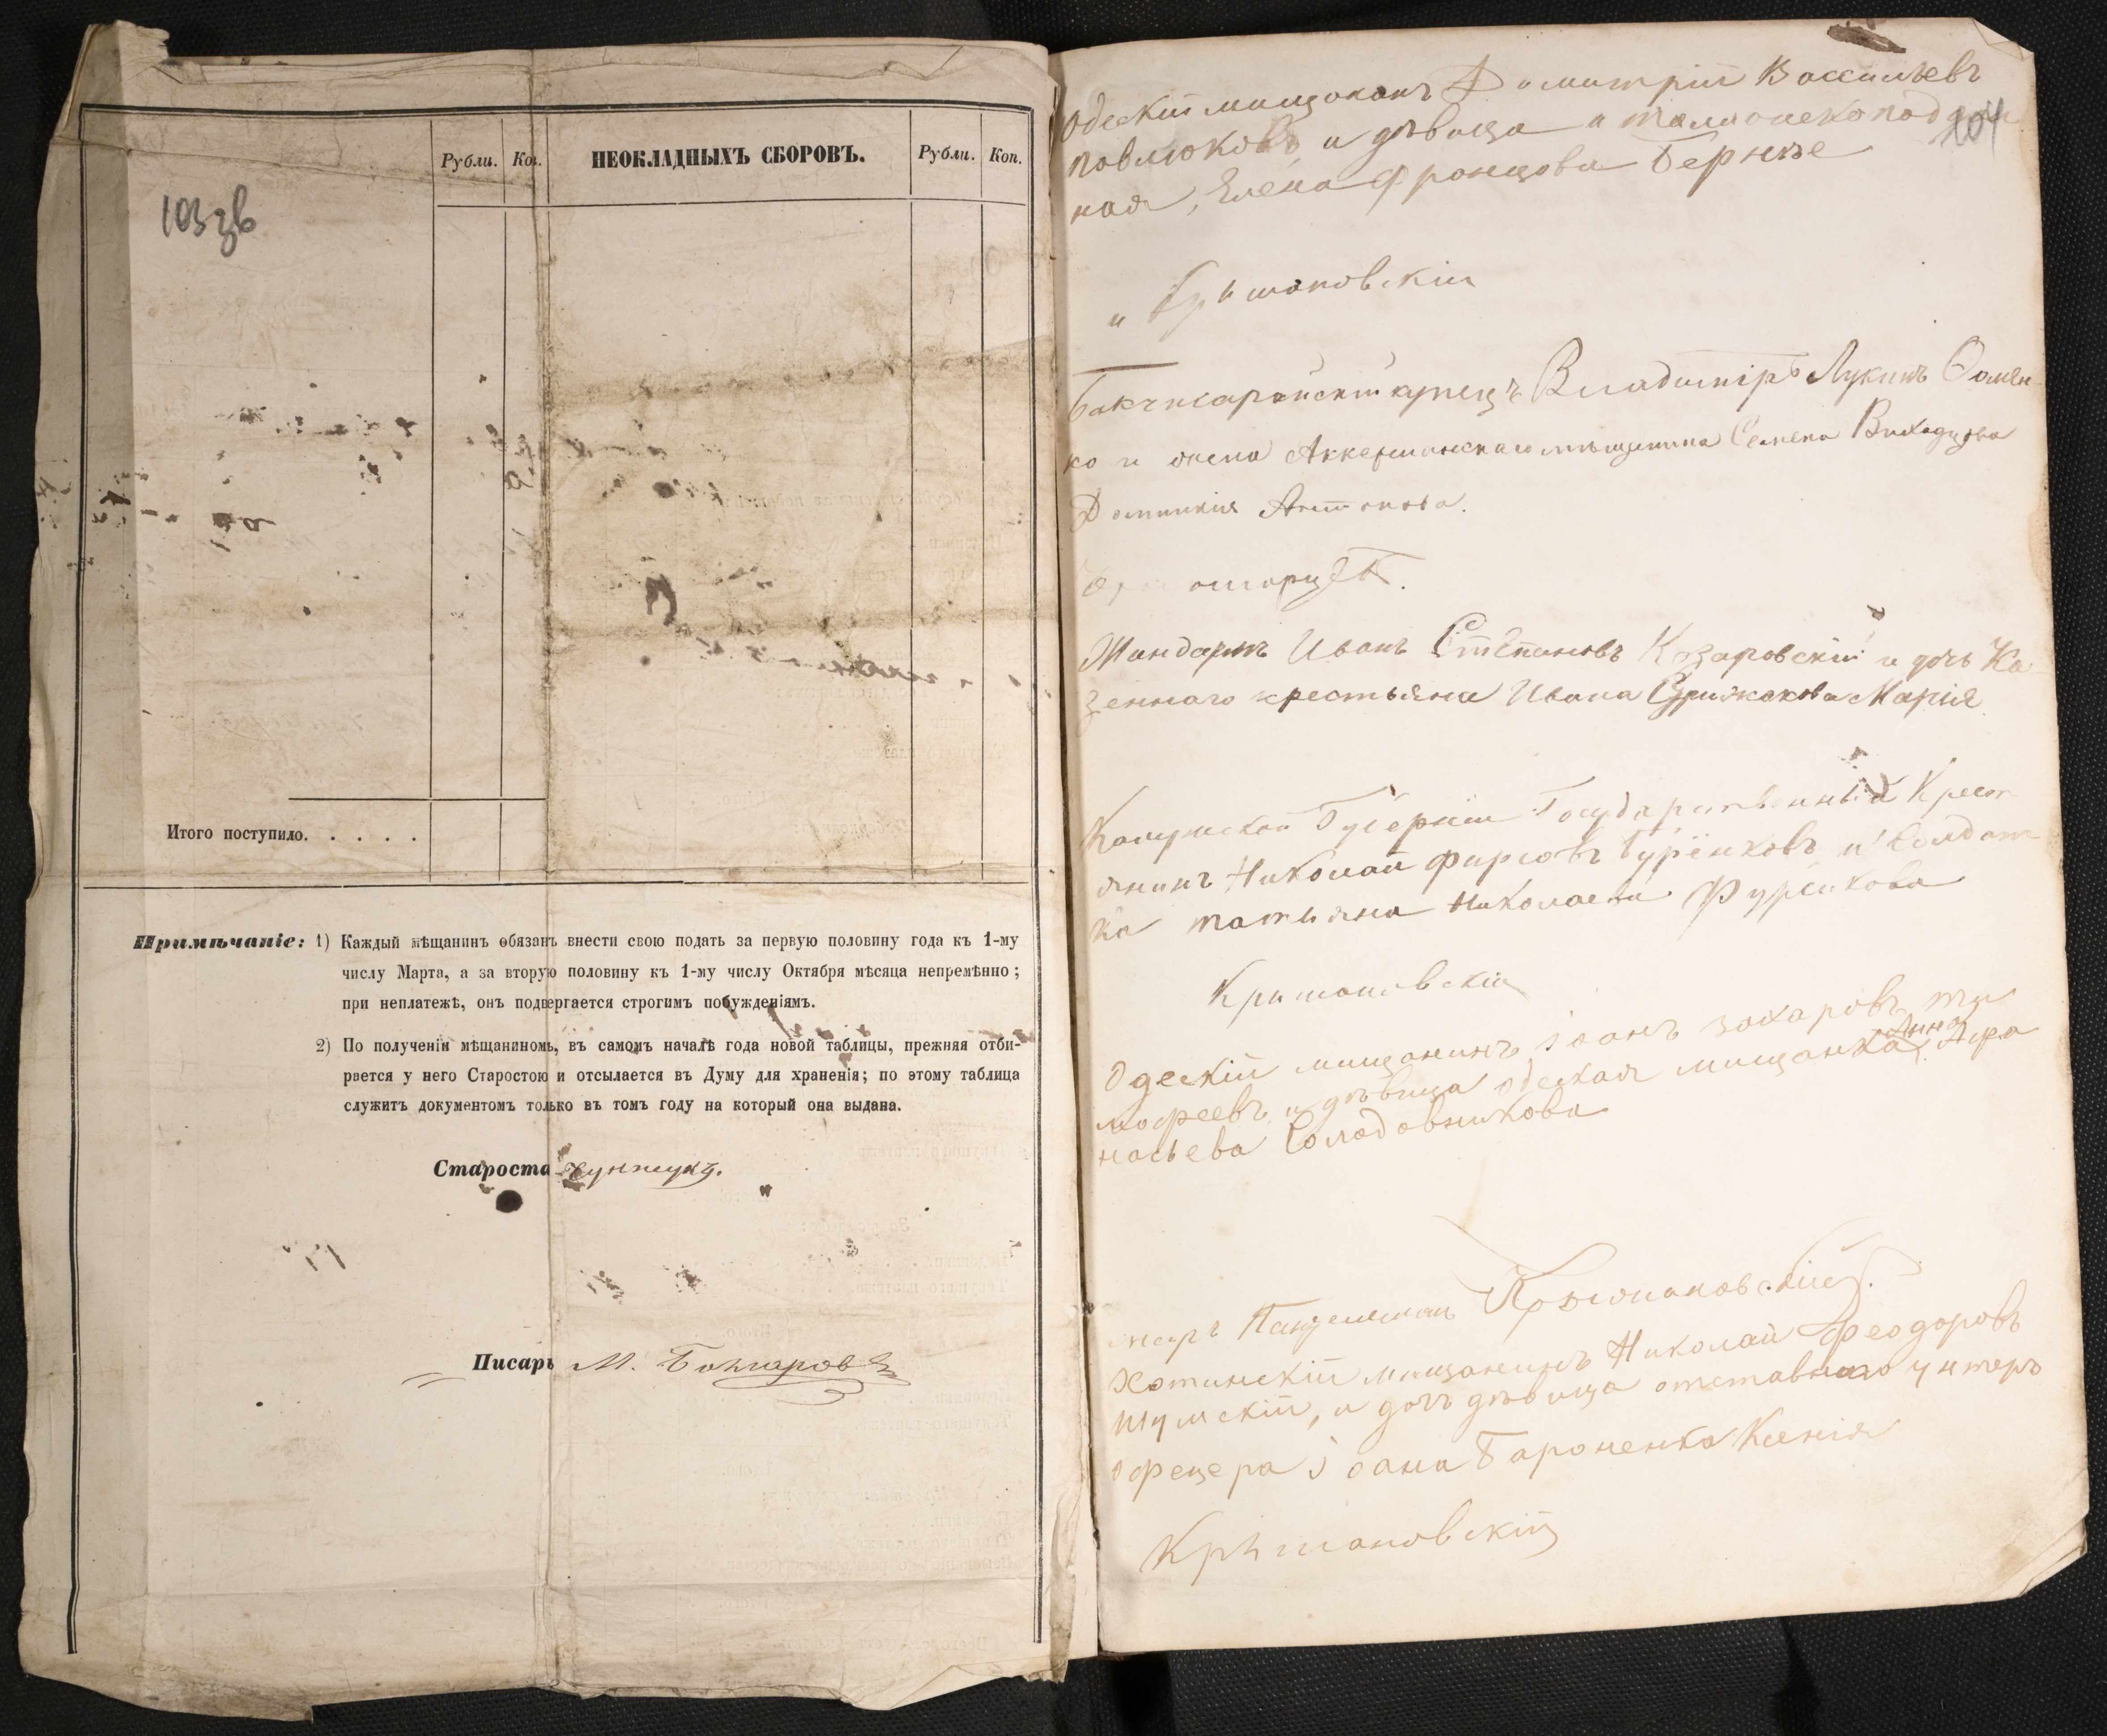 103 зв
Рубли. Коп. НЕОКЛАДНЫХЪ СБОРОВЪ. Рубли. Коп.
Итого поступило. . . . .
Примѣчаніе: 1) Каждый мѣщанинъ обязанъ внести свою подать за первую половину года къ 1-му
числу Марта, а за вторую половину къ 1-му числу Октября мѣсяца непремѣнно;
при неплатежѣ, онъ подвергается строгимъ побужденіямъ.
2) По полученіи мѣщаниномъ, въ самомъ началѣ года новой таблицы, прежняя отби-
рается у него Старостою и отсылается въ Думу для храненія; по этому таблица
служитъ документомъ только въ томъ году на который она выдана.
Староста
Писарь М.
104
Одескій мищананъ Димитрій Васильевъ
Повлюковъ и дѣвица италионскоподдан
ная, Елена Францова Бернье
Бакчисарайскій купецъ Владиміръ Лукинъ Фомен-
ко и жена Аккерманскаго мѣщанина Семена
Доминикія Антонова.
Жандармъ Иванъ Стѣпановъ Козаровскій и дочь Ка
зеннаго крестьяна Ивана Марія
Калужской Губерніи Государственный Крест
янинъ Николай Фирсовъ Гурёнковъ и Солдат
ка татьяна Николаева Фурсикова
Кришановскій
Одескій мищанинъ Іоанъ Захаровъ ти
мофеевъ и дѣвица одеская мищанка Анна Афа
насьева Солодовникова
Хотинскій мищанинъ Николай Феодоровъ
Шумскій, и дочь дѣвица отставнаго унтеръ
офецера Іоана Бароненка Ксенія
Кришановскій